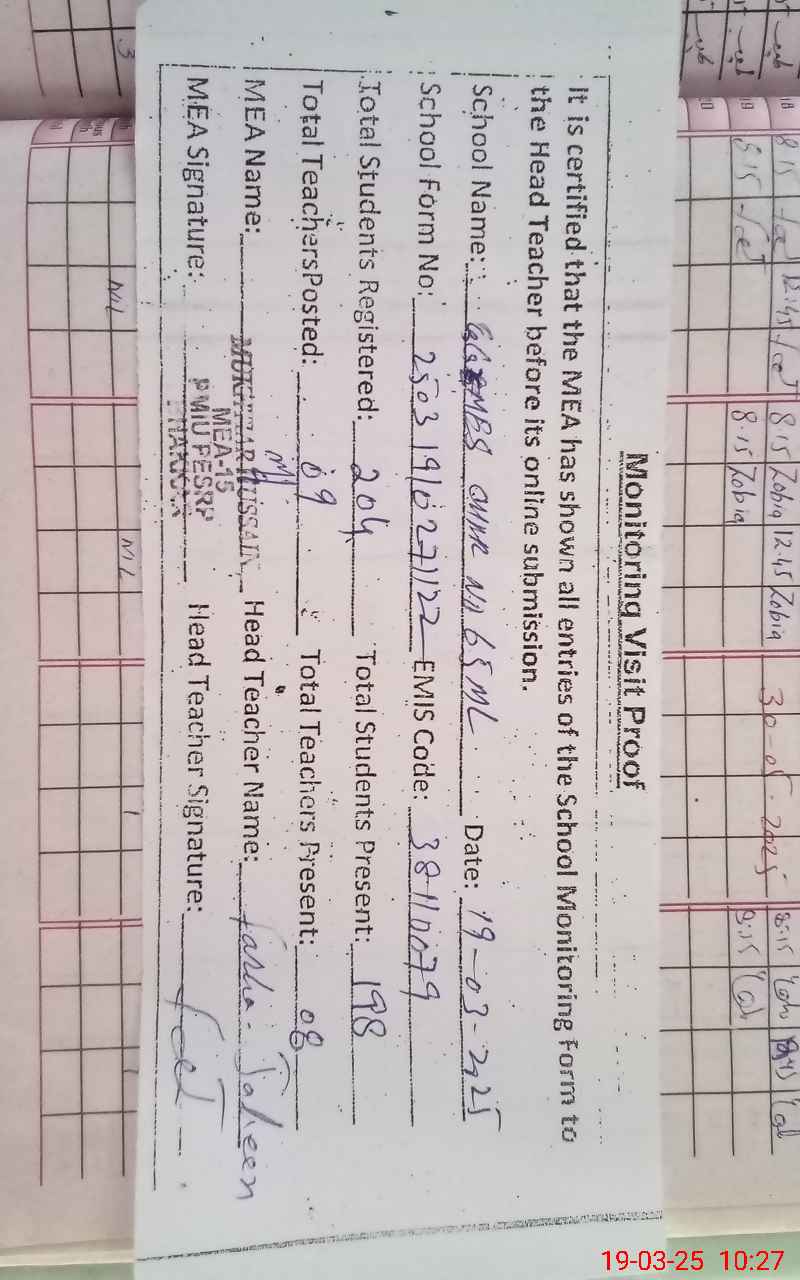 Monitoring Visit Proof
It is certified that the MEA has shown all entries of the School Monitoring Form to
the Head Teacher before its online submission.
School Name: 65 ML Date: 19-03-2025
School Form No: 25031910271122 EMIS Code: 38110079
Total Students Registered: 204 Total Students Present: 198
Total Teachers Posted: 09 Total Teachers Present: 08
MEA Name: MUKHTAR HUSSAIN Head Teacher Name: Tasheen
MEA-15
MEA Signature: PMIU PESRP Head Teacher Signature:
BHAKKAR
8 15 12:45 8 15 Zobia 12.45 Zobia 8:15
8 15 8.15 Zobia 8:15
30-05-2025
Nil
Nil
19-03-25 10:27